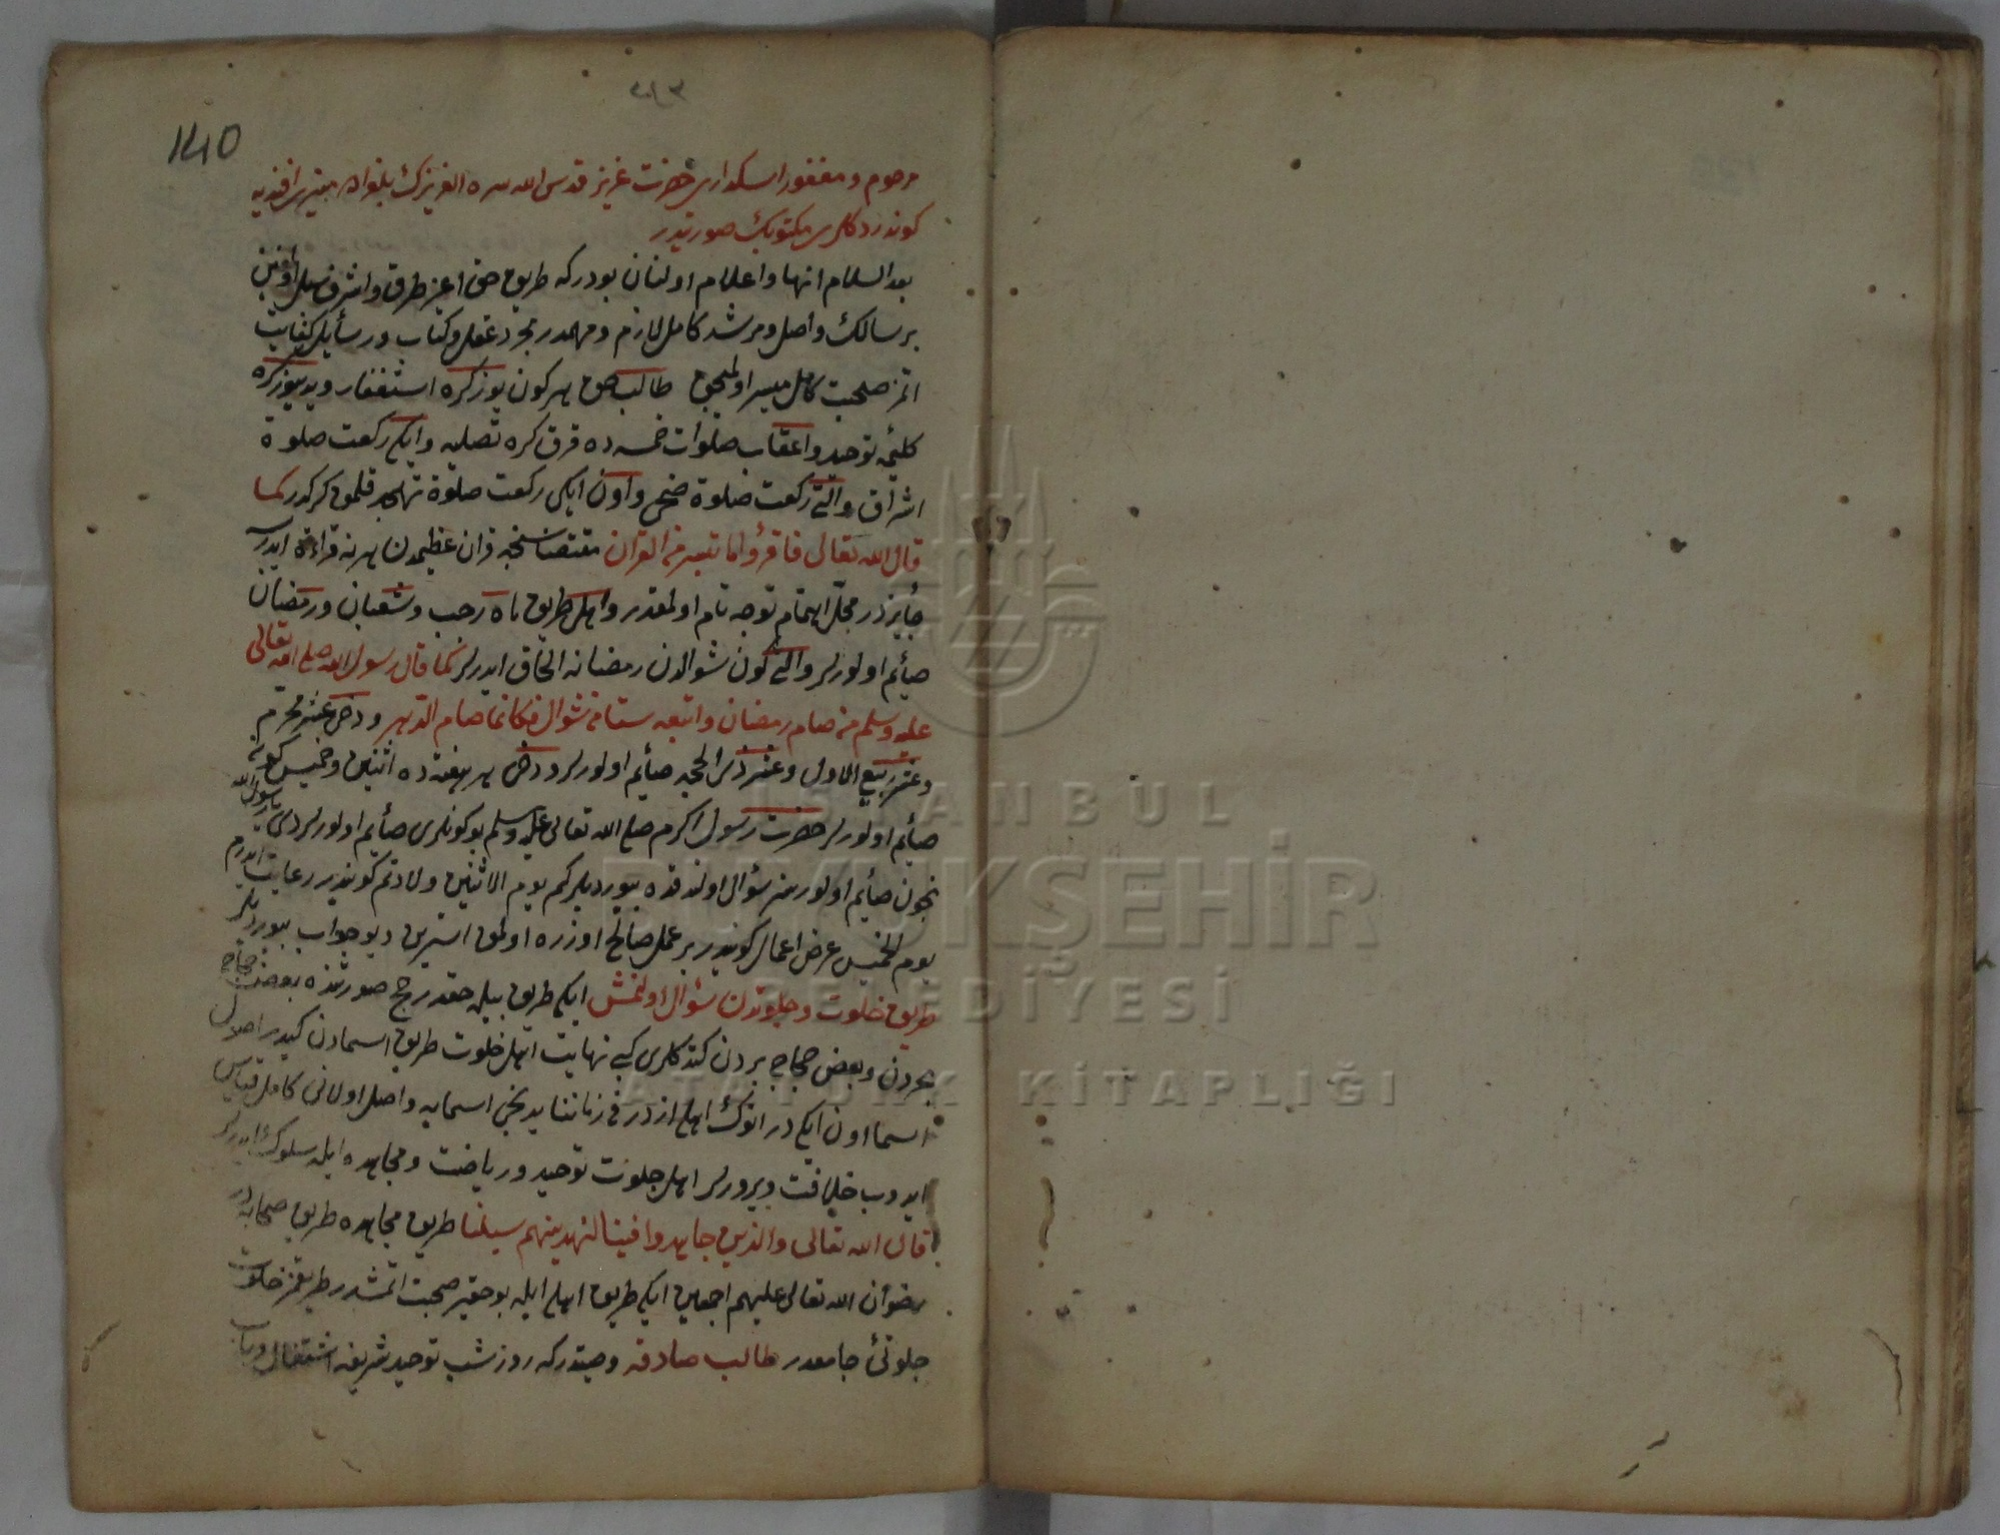 140
مرحوم و مغفور اسكداری حضرت عزیز قدس الله سره العزیزك بلغراده منیری افندیه
كوندردكلری مكتوبك صورتیدر
بعد السلام انها و اعلام اولنان بودر كه طریق حق اعز طرق و اشرف سبل اولدیغیچین
بر سالك واصل و مرشد كامل لازم و مهمدر مجرد عقل و كتاب و رسایل كفایت
اتمز صحبت كامل میسر اولمیجق طالب حق هر كون یوز كره استغفار و یدییوز كره
كلمۀ توحید و اعقاب صلوات خمسه ده قرق كره تصلیه و ایكی ركعت صلوة
اشراق و التی ركعت صلوة ضحی و اون ایكی ركعت صلوة تهجد قلمق كركدر كما
قال الله تعالی فاقرؤا ما تیسر من القران مقتضاسنجه قران عظیمدن هر نه قراءة ایدرسه
جایزدر محل اهتمام توجه تام اولمقدر و اهل طریق ماه رجب و شعبان و رمضان
صایم اولورلر و التی كون شوالدن رمضانه الحاق ایدرلر كما قال رسول الله صلی الله تعالی
علیه و سلم من صام رمضان و اتبعه ستا من شوال فكانما صام الدهر و دخی عشر محرم
و عشر ربیع الاول و عشر ذی الحجه صایم اولورلر و دخی هر هفته ده اثنین و خمیس كونی
صایم اولورلر حضرت رسول اكرم صلی الله تعالی علیه و سلم بو كونلری صایم اولورلردی یا رسول الله
نچون صایم اولورسز سؤال اولندقده بیوردیلر كم یوم الاثنین ولادتم كونیدر رعایت ایدرم
یوم الخمیس عرض اعمال كونیدر بر عمل صالح اوزره اولمق استرین دیو جواب بیوردیلر
طریق خلوت و جلوتدن سؤال اولنمش ایكی طریق بیله حقدر حج صورتنده بعض حجاج
بحردن و بعض حجاج بردن كتدكلری كبی نهایت اهل خلوت طریق اسمادن كیدر اصول
اسما اون ایكیدر انوك اهلی ازدر فی زماننا یدنجی اسمایه واصل اولانی كامل قیاس
ایدوب خلافت ویرورلر اهل جلوت توحید و ریاضت و مجاهده ایله سلوك ایدرلر
قال الله تعالی والذین جاهدوا فینا لنهدینهم سبلنا طریق مجاهده طریق صحابه در
رضوان الله تعالی علیهم اجمعین ایكی طریق اهلی ایله بو حقیر صحبت اتمشدر طریقمز خلوت
جلوتی جامعدر طالب صادقه وصیتدر كه روز شب توحید شریفه اشتغال
ISTANBUL
BÜYÜKŞEHİR
BELEDİYESİ
ATATÜRK KİTAPLIĞI